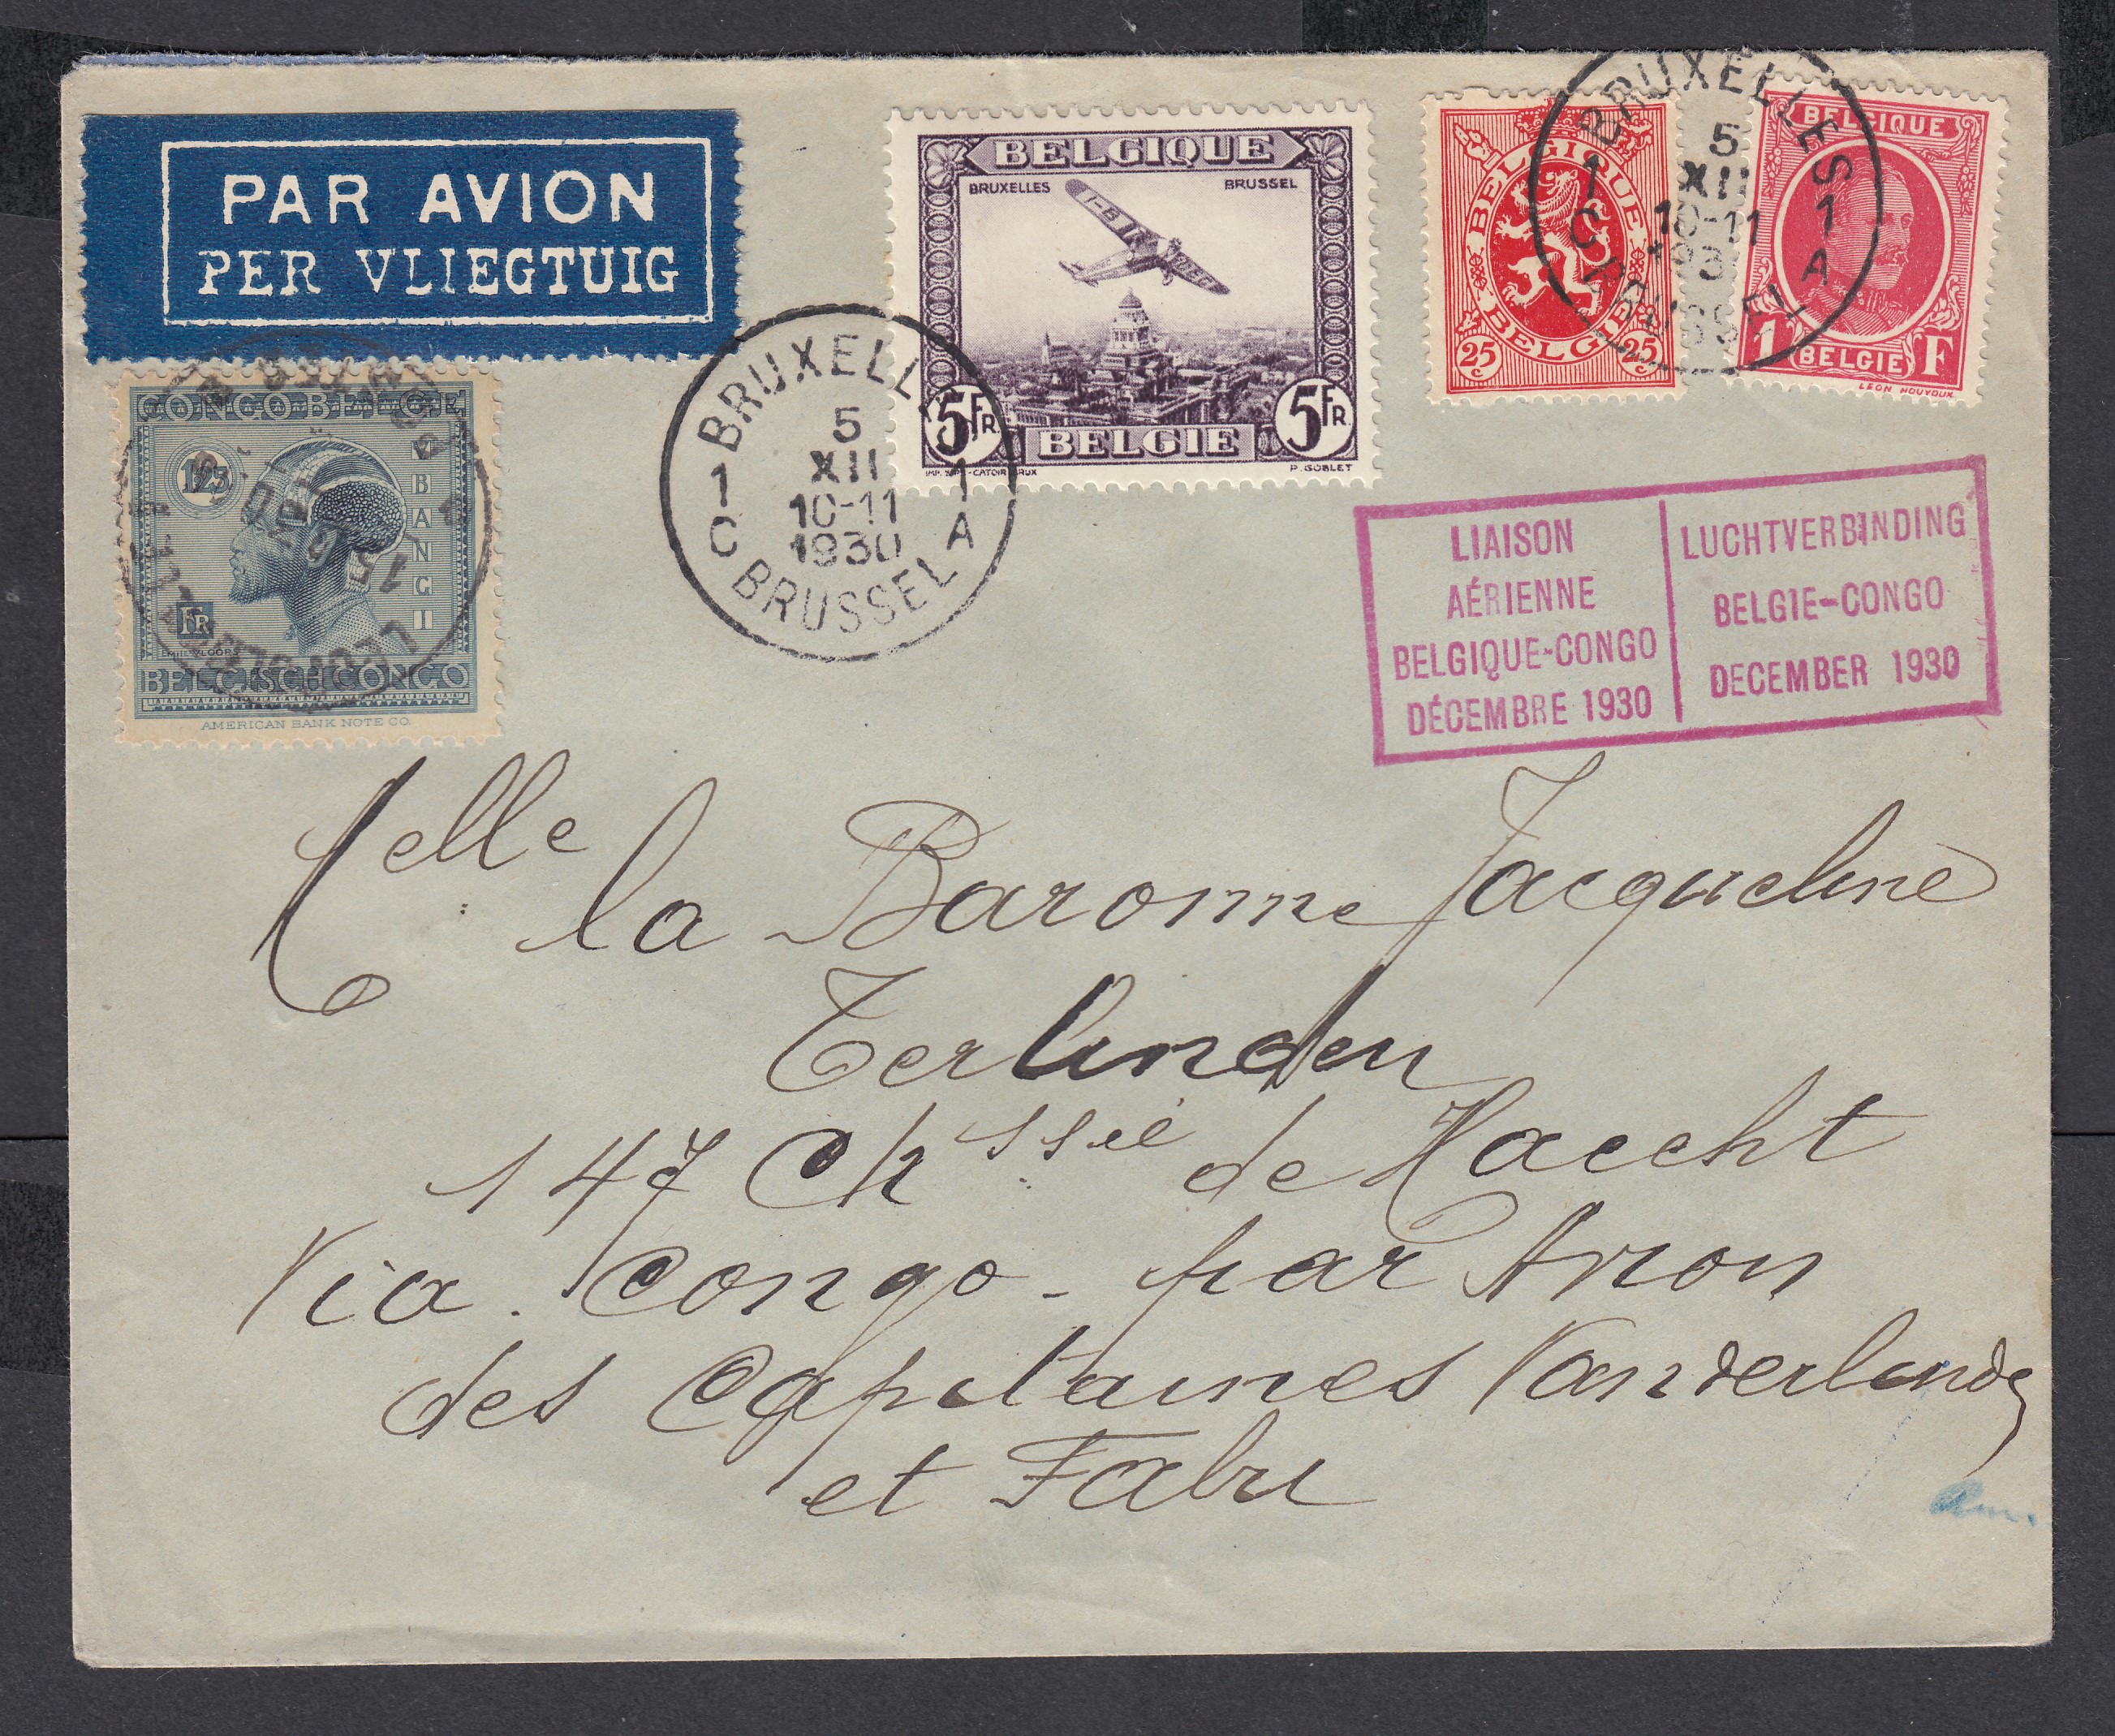 PAR AVION
PER VLIEGTUIG
BELGIQUE
BRUXELLES BRUSSEL
5 FR. 5 FR.
BELGIE
P. GOBLET
BELGIQUE
BELGIE
25 c 25 c
BELGIQUE
1 F
BELGIE
LEON HOUYOUX
BRUXELLES
1 1
5
XII
10-11
C A
BRUSSEL
BRUXELL
5
XII
1 1
10-11
1930
C A
BRUSSEL
CONGO BELGE
UBANGI
FR
EMILE VLOORS
BELGISCH CONGO
AMERICAN BANK NOTE CO.
LIAISON
AÉRIENNE
BELGIQUE-CONGO
DÉCEMBRE 1930
LUCHTVERBINDING
BELGIE-CONGO
DECEMBER 1930
Melle la Baronne Jacqueline
Terlinden
147 Chssée de Haecht
Via. Congo - par Avion
des Capitaines Vanderlinden
et Fabry